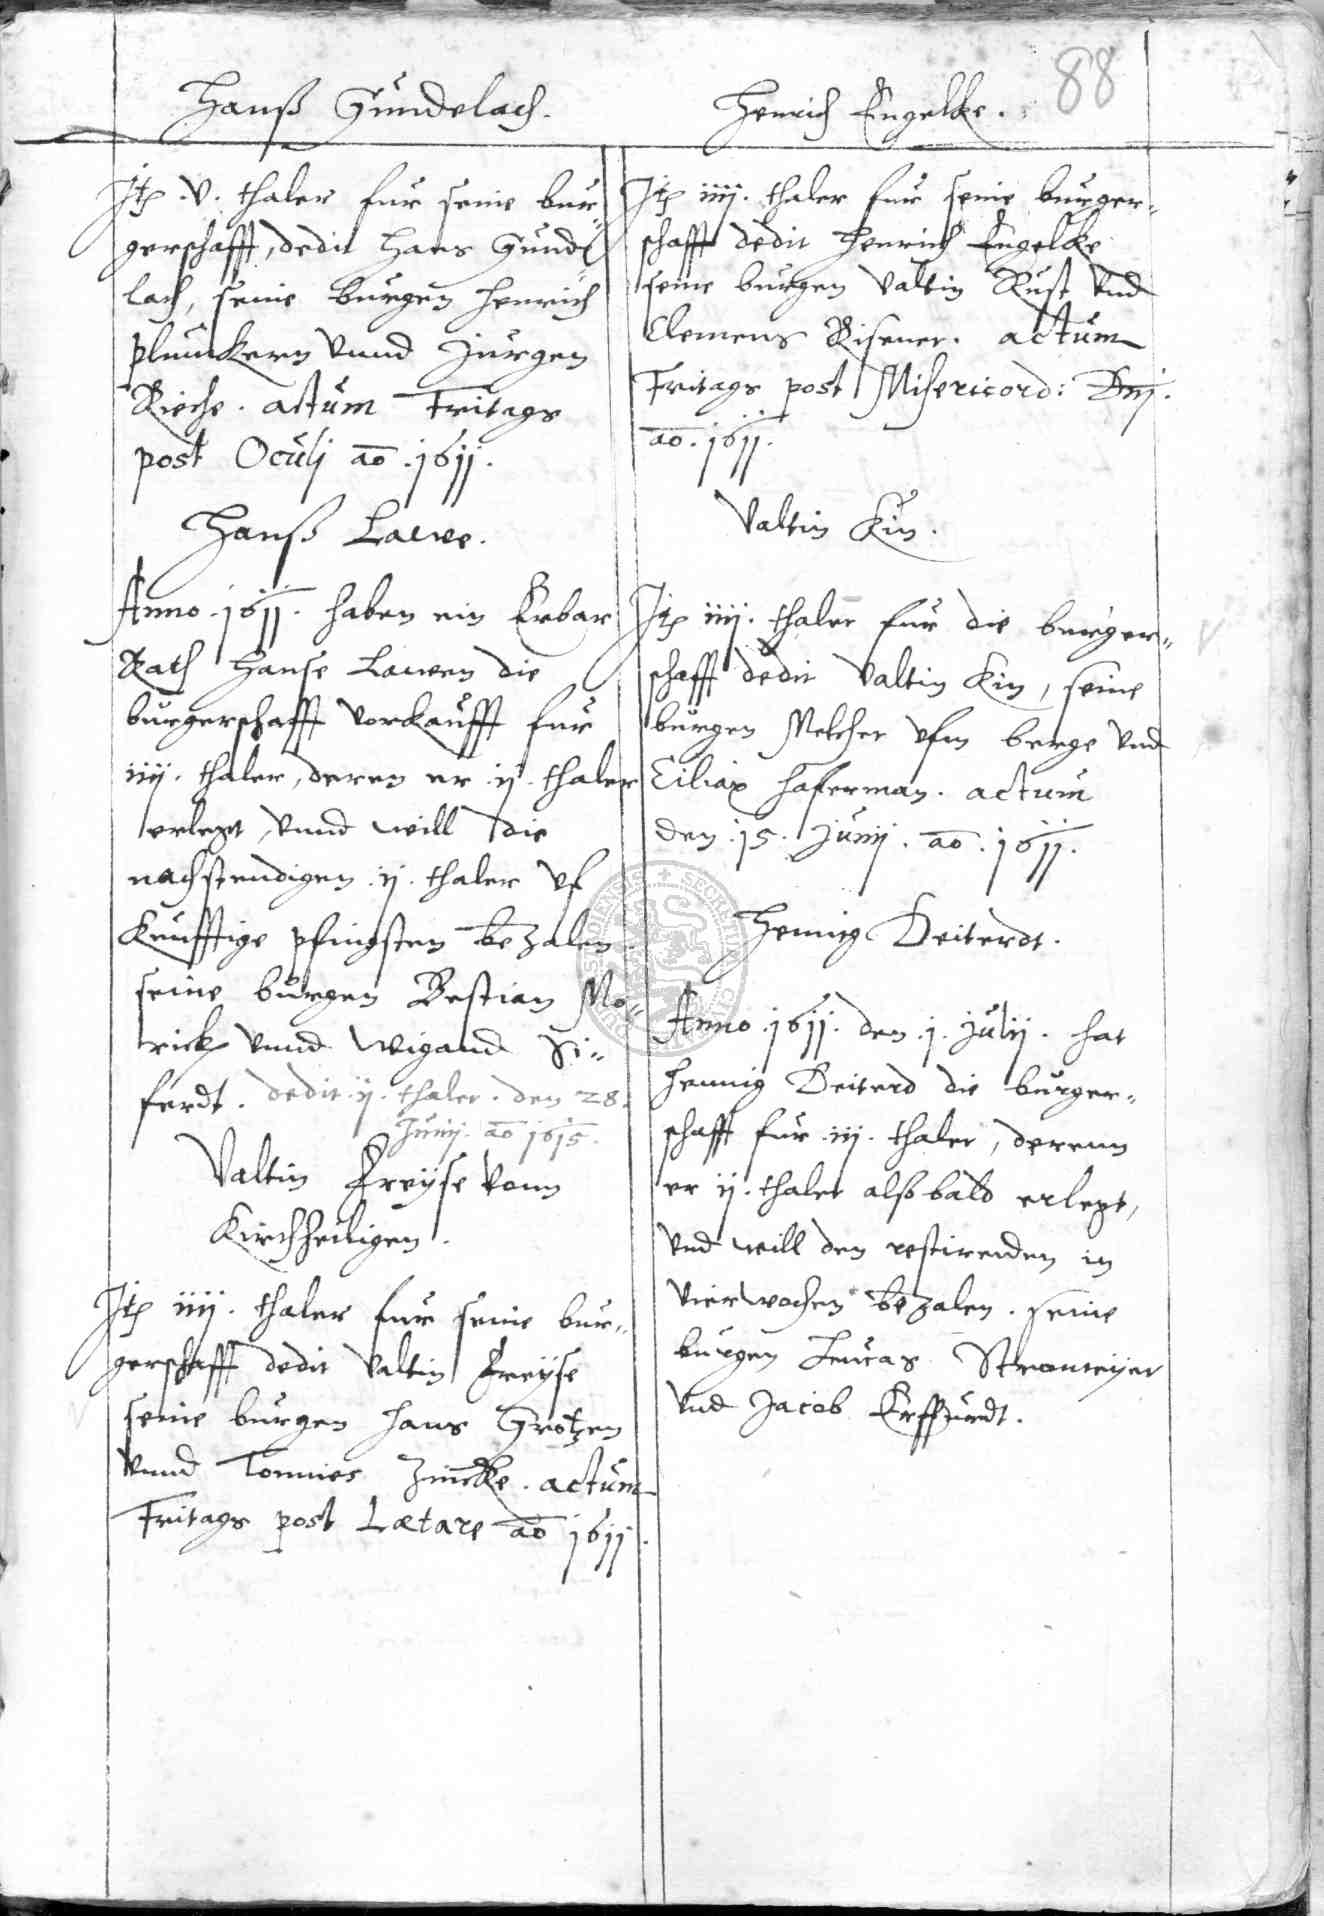 88
Hanß Gundelach.
Jtē .v. thaler fur seine bur⸗
gerschafft, dedit Hans Gunde⸗
lach, seine burgen Henrich
plunckern vnnd Jurgen
Rieche. actum Fritags
post Oculi ao. 1611.
Hanß Lauwe.
Anno .1611. haben ein Erbar
Rath Hanse Lauwen die
burgerschafft vorkaufft fur
iiij. thaler, deren er ij. thaler
erlegt, vnnd will die
nachstendigen .ij. thaler vf
Kunfftige pfingsten bezalen
seine burgen Bestian Mo⸗
rick vnnd Wigand Si⸗
ferdt. dedit ij. thaler. den 28.
Junij. ao 1615.
Valtin Freyse vonn
Kirchheiligen.
Jtē iiij. thaler fur seine bur⸗
gerschafft dedit Valtin Freyse
seine burgen Hans Grotzen
vnnd Tonnies Zincke. actum
Fritags post Lætare ao 1611.
Henrich Engelke.
Jtē iiij. thaler fur seine burger⸗
schafft dedit Henrich Engelke
seine burgen Valtin Rust vnd
Clemens Risener. actum
Fritags post Misericord: Dnj.
ao. 1611.
Valtin Kin.
Jtē iiij. thaler fur die burger⸗
schafft dedit Valtin Kin, seine
burgen Melcher vfm berge vnd
Ciliax Haferman. actum
den .15. Junij. ao. 1611.
Hennig Deiterdt.
Anno .1611. den .1. Julij. hat
Hennig Deiterd die burger⸗
schafft fur .iij. thaler, derenn
er ij. thaler alßbald erlegt,
vnd will den restirenden in
vier wochen bezalen. seine
burgen Lucas Stromeijer
vnd Jacob Erffurdt.